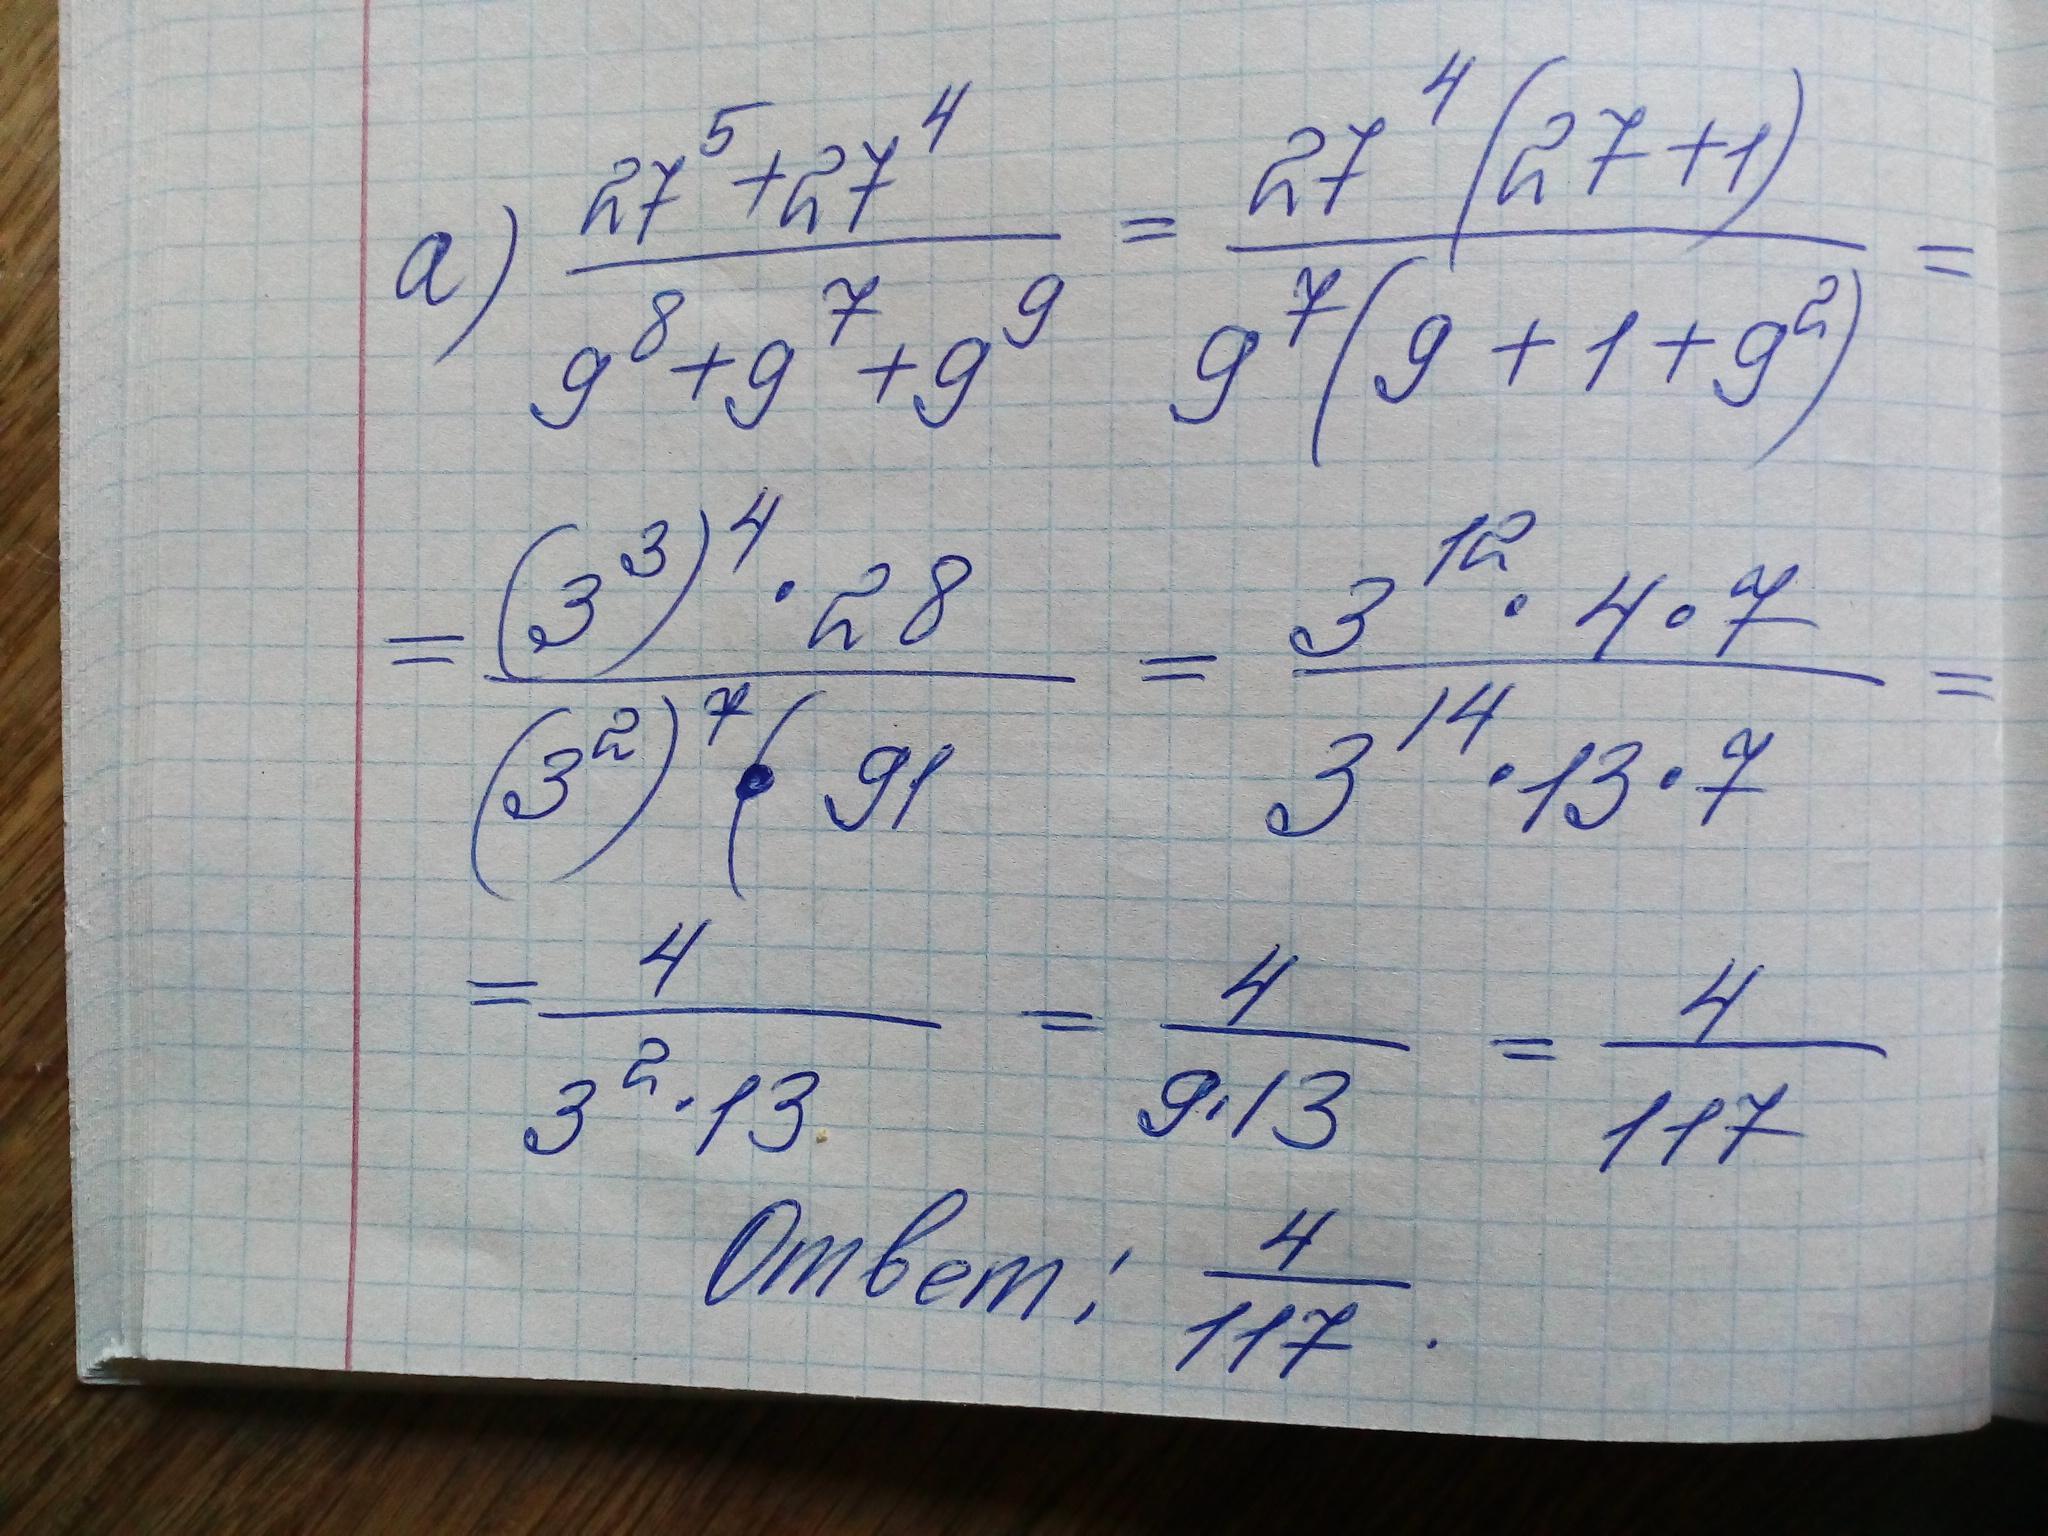 а) (27^5 + 27^4)/(9^8 + 9^7 + 9^9) = (27^4 (27 + 1))/(9^7 (9 + 1 + 9^2)) =
= ((3^3)^4 · 28)/((3^2)^7 · ( 91) = (3^12 · 4 · 7)/(3^14 · 13 · 7) =
= 4/(3^2 · 13) = 4/(9 · 13) = 4/117
Ответ: 4/117.